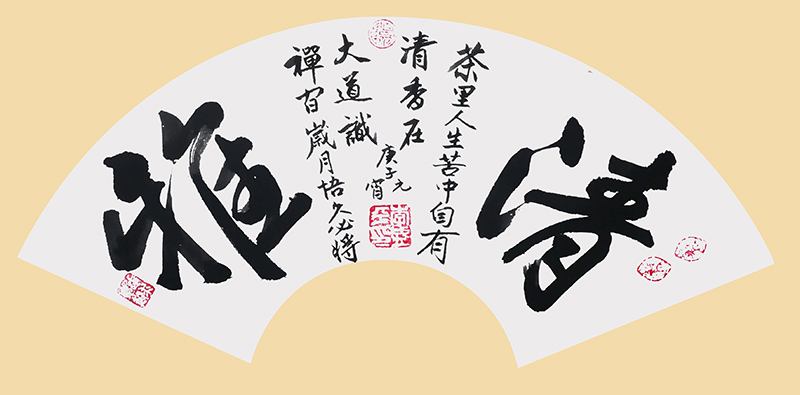 清雅
茶里人生苦中自有
清香在
禪歲月悟久必將
大道識
庚子元
宵